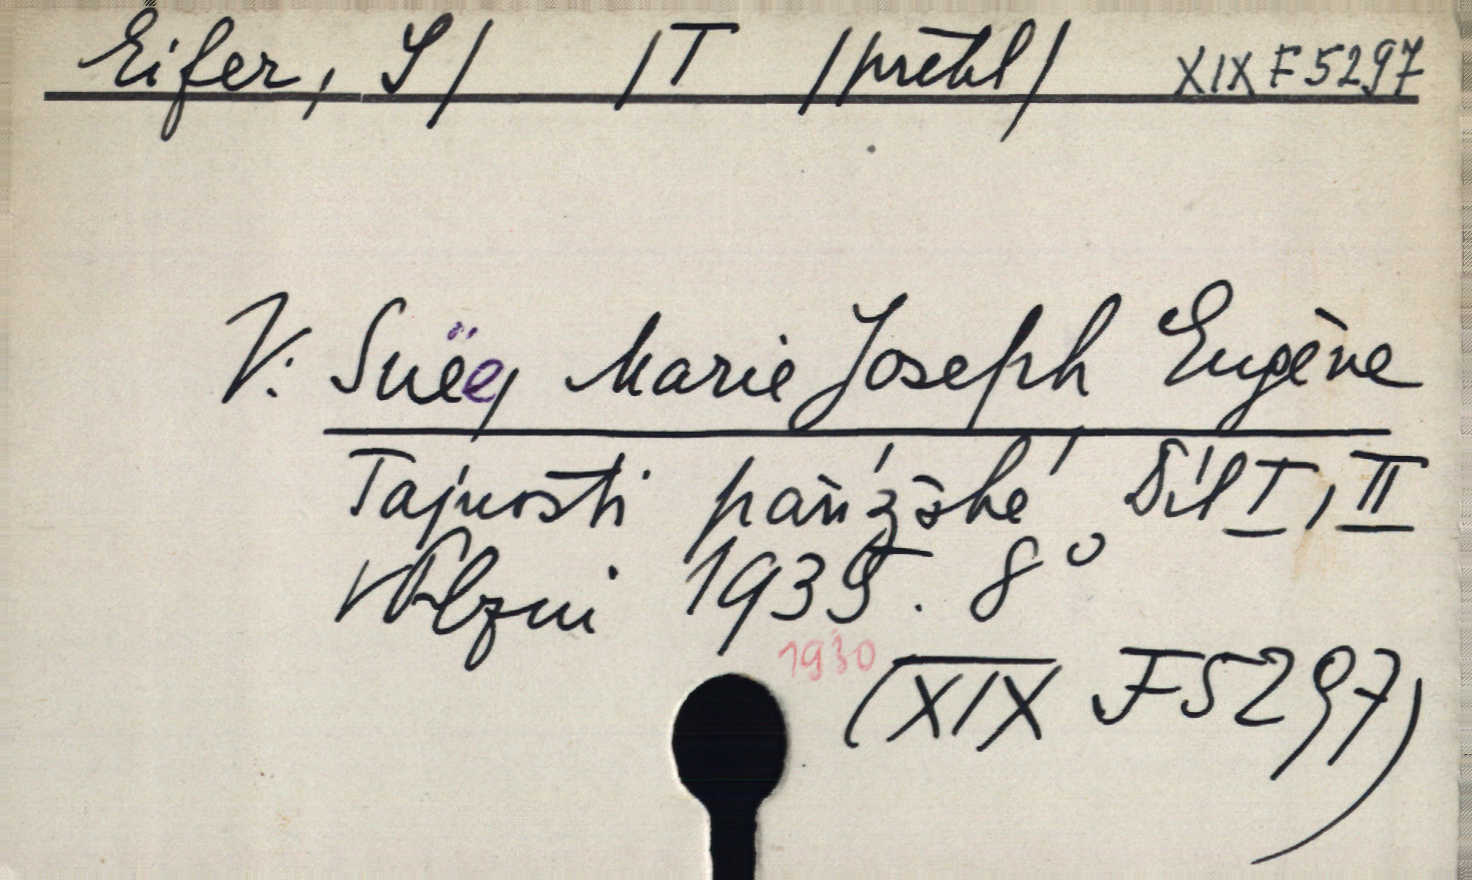 Eifer, S/ /T /překl/ XIX F 5297
V: Suëe, Marie Joseph Eugène
Tajnosti pařížské Díl I, II
V Plzni 1935. 8°
1930
(XIX F 5297)